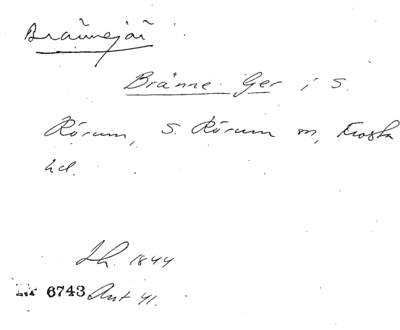 Brännejär
Bränne Ger i S.
Rörum, S. Rörum sn, Frosta
hd.
Lh. 1844
6743 Ant 41.